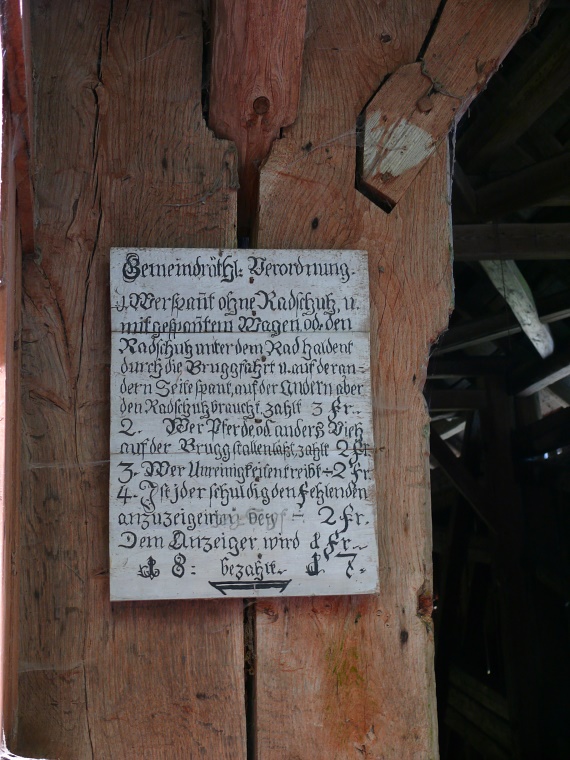 Gemeindräthl: Verordnung.
1. Wer spañt ohne Radschuh, u.
mit gespañtem Wagen od. den
Radschuh unter dem Rad haldent
durch die Bruggfährt u. auf der an-
dern Seite spant, auf der Andern aber
den Radschuh braucht, zahlt 3 Fr..
2. Wer Pferde, od. anders Vieh
auf der Brugg stallen laßt, zahlt 2 Fr.
3. Wer Unreinigkeiten treibt 2 Fr.
4. Ist jder schuldig den Fehlenden
anzuzeigen bey 2 Fr.
Dem Anzeiger wird 1 Fr..
8: bezahlt. 7.